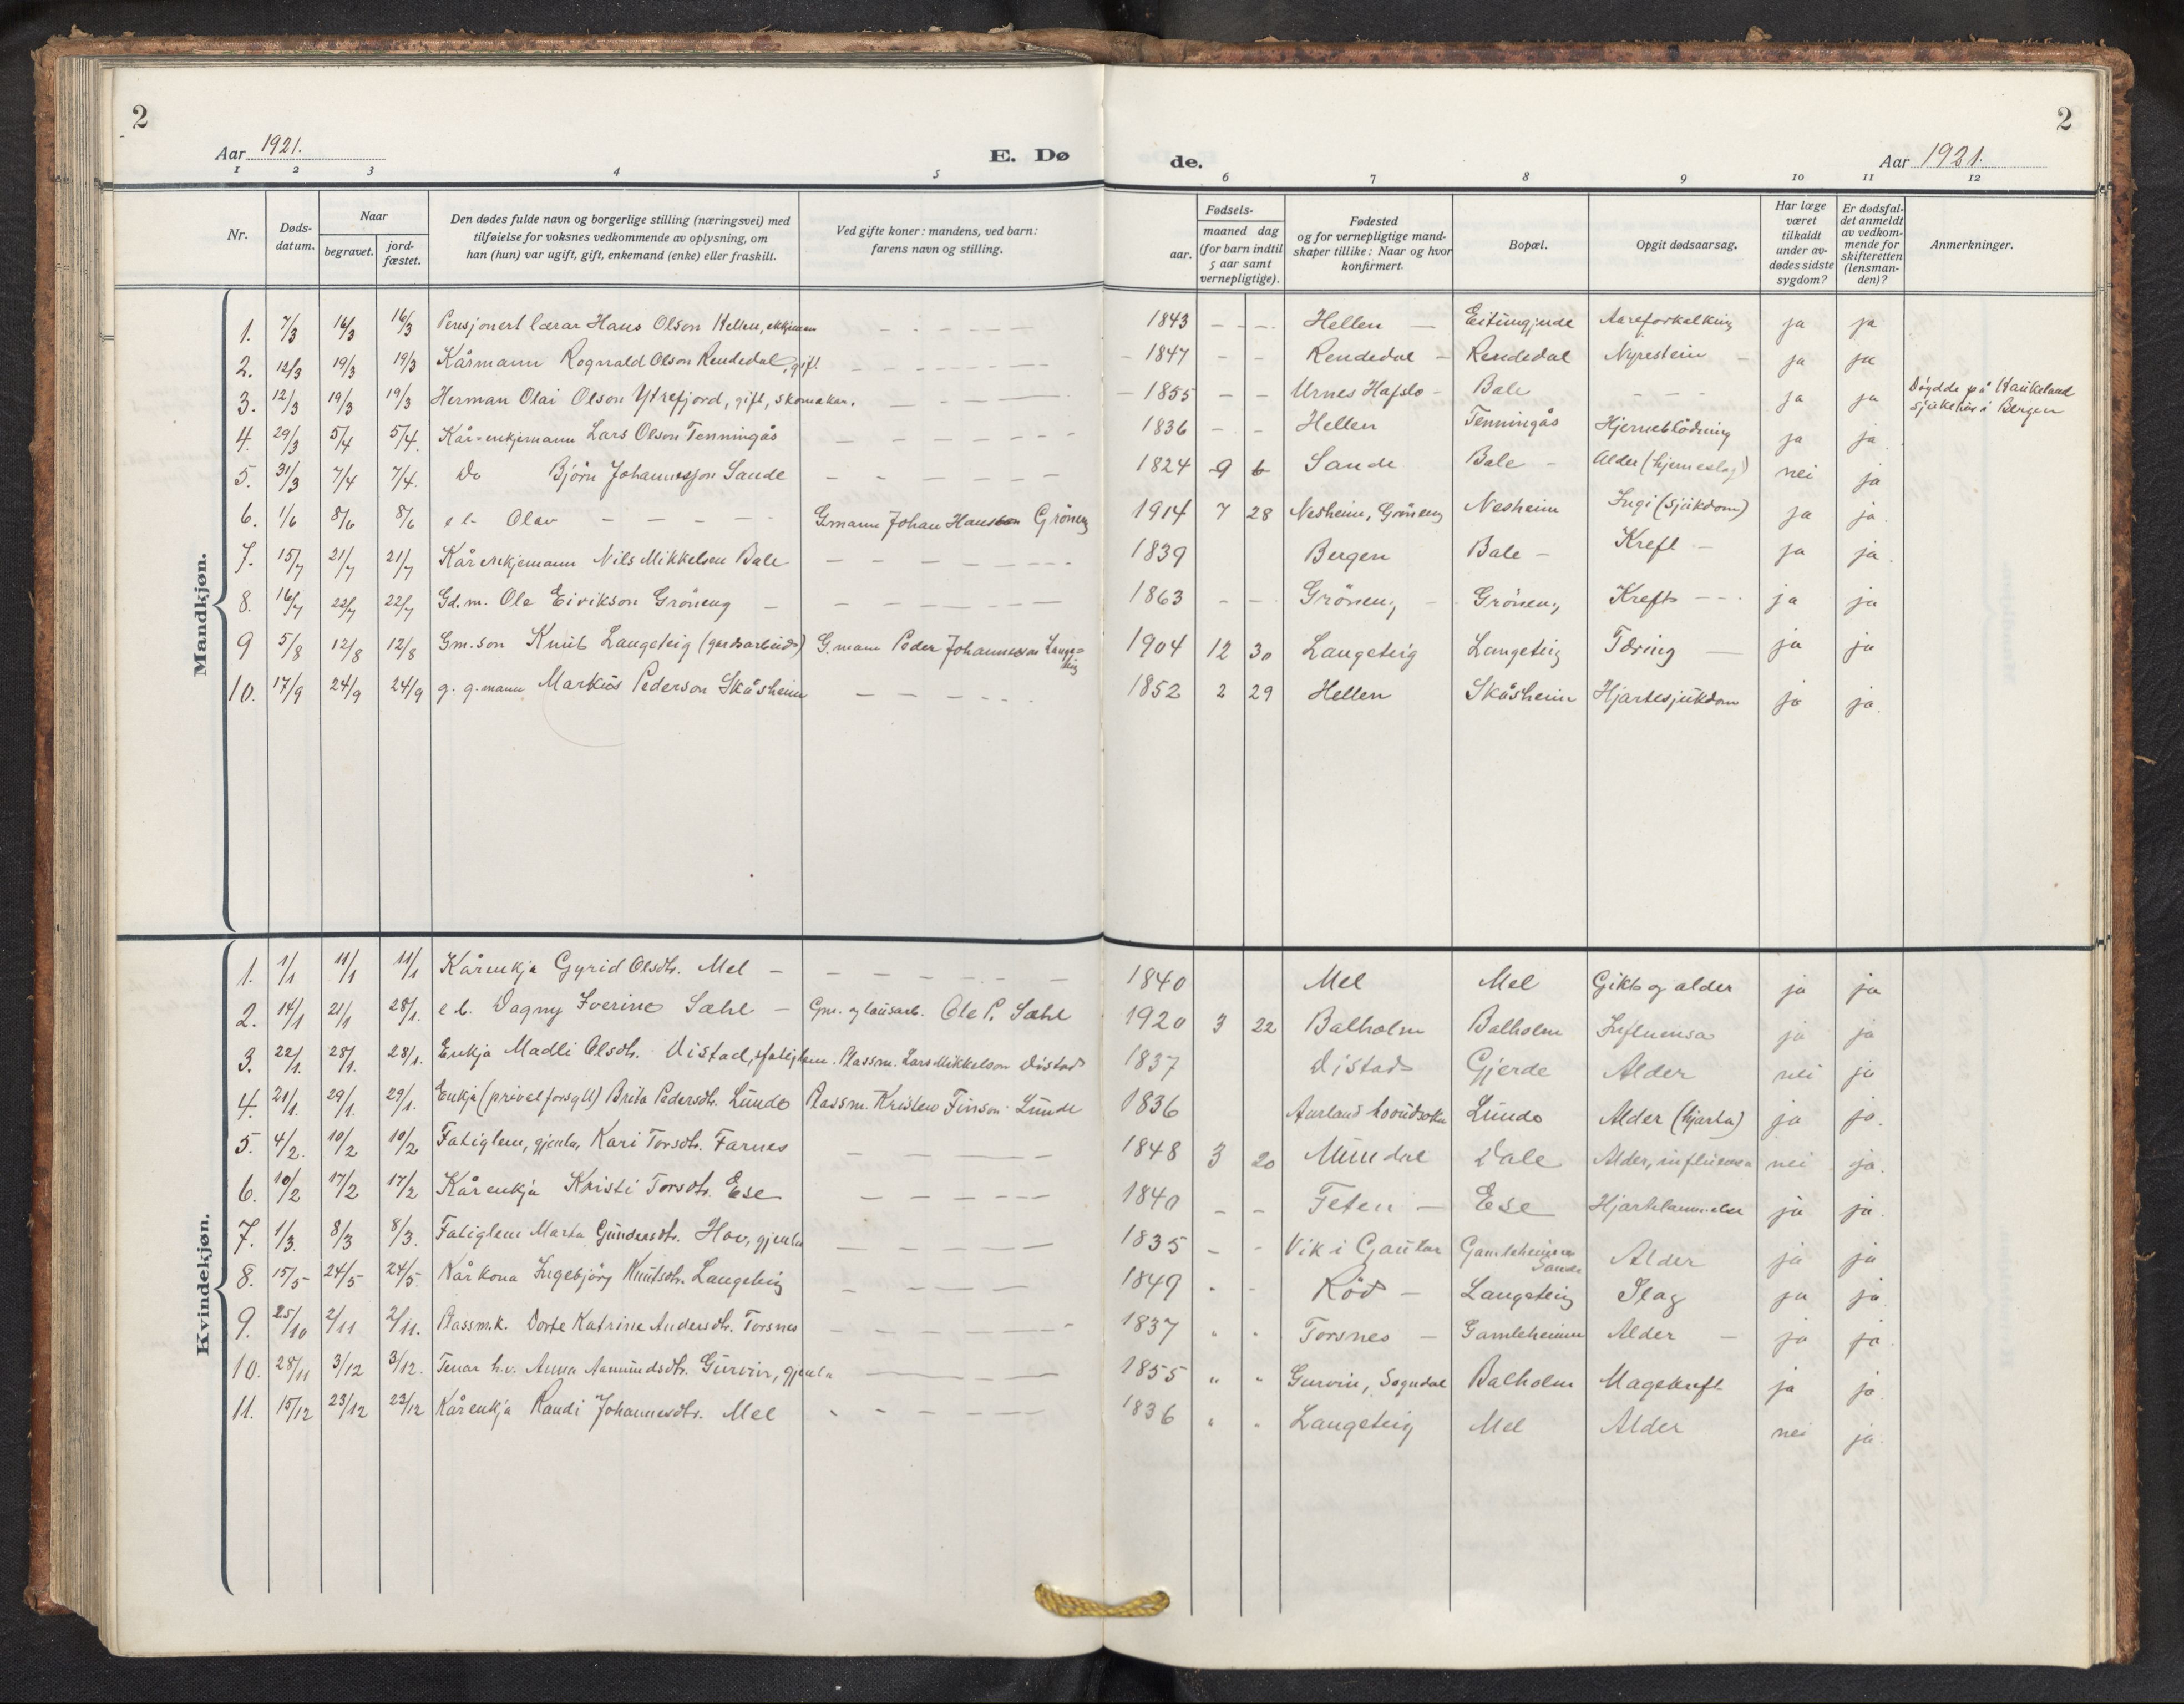 2
Aar 1921.
E. Dø
de.
Aar 1921.
2
1 2 3 4 5 6 7 8 9 10 11 12
Nr.
Døds-datum.
Naar
begravet.
jord-fæstet.
Den dødes fulde navn og borgerlige stilling (næringsvei) med
tilføielse for voksnes vedkommende av oplysning, om
han (hun) var ugift, gift, enkemand (enke) eller fraskilt.
Ved gifte koner: mandens, ved barn:
farens navn og stilling.
Fødsels-
aar.
maaned dag
(for barn indtil
5 aar samt
vernepligtige).
Fødested
og for vernepligtige mand-
skaper tillike: Naar og hvor
konfirmert.
Bopæl.
Opgit dødsaarsag.
Har læge
været
tilkaldt
under av-
dødes sidste
sygdom?
Er dødsfal-
det anmeldt
av vedkom-
mende for
skifteretten
(lensman-
den)?
Anmerkninger.
Mandkjøn.
1. 7/3 16/3 16/3 Pensjonert lærar Hans Olson Hellen, ekkjeman - - - - 1843 - - Hellen - Eitungjerde Aareforkalking ja ja
2. 12/3 19/3 19/3 Kårmann Rognald Olson Rendedal, gift - - - - 1847 - - Rendedal - Rendedal Nyrestein - ja ja
3. 12/3 19/3 19/3 Herman Olai Olson Ytrefjord, gift, skomakar. - - - 1855 - - Urnes Hafslo - Bale - - - ja ja Döydde på Haukeland
sjukehus i Bergen
4. 29/3 5/4 5/4. Kår-enkjemann Lars Olson Tenningås - - - - 1836 - - Hellen Tenningås Hjerneblödning ja ja
5. 31/3 7/4 7/4. Do Bjørn Johannesson Sande - - - - 1824 9 6 Sande Bale - Alder (hjerneslag) nei ja
6. 1/6 8/6 8/6 e b. Olav - - - - G.mann Johan Hansson Gröneng 1914 7 28 Nesheim, Gröneng Nesheim (sjukdom) ja ja.
7. 15/7 21/7 21/7 Kårenkjemann Nils Mikkelsen Bale - - - - 1839 Bergen Bale - Kreft - ja ja.
8. 16/7 22/7 22/7 Gd.m. Ole Eirikson Gröneng - - - - 1863 - - Gröneng - Gröneng Kreft - - ja ja
9 5/8 12/8 12/8 Gm.son Knut Langeteig (gardsarbeid) G.mann Peder Johannesson Lange=
teig 1904 12 30 Langeteig Langeteig Tæring - ja ja
10. 17/9 24/9 24/9 g. g.mann Markus Pederson Skåsheim - - - - 1852 2 29 Hellen Skåsheim Hjartesjukdom ja ja.
Kvindekjøn.
1. 1/1 11/1 11/1 Kårenkja Gyrid Olsdtr. Mel - - - - - 1840 Mel Mel Gikt og alder ja ja
2. 14/1 21/1 28/1. e b. Dagny Iverine Sæhle - Gm. og lausarb. Ole P. Sæhle 1920 3 22 Balholm Balholm Influensa ja ja
3. 22/1. 28/1. 28/1. Enkja Madli Olsdtr. Vistad, fatiglem. Plassm. Lars Mikkelson Vistad 1837 Vistad Gjerde Alder nei ja
4. 21/1. 29/1. 29/1. Enkja (privat forsytt) Brita Pedersdtr. Lunde Plassm. Kristen Finson Lunde 1836 Aurland hovudsokn Lunde Alder (hjarta) ja ja.
5. 4/2. 10/2 10/2 Fatiglem, gjenta, Kari Torsdtr. Farnes - - - - 1848 3 20 Mundal Vale Alder, influensa nei ja.
6. 10/2 17/2 17/2 Kårenkja Kristi Torsdtr. Ese - - - - 1840 - - Feten - Ese Hjartelammelse ja ja.
7. 1/3. 8/3 8/3. Fatiglem Marta Gundersdtr. Hov, gjenta - - - - 1835 - - Vik i Gaular Gamleheimen
Sande Alder ja ja
8. 15/5 24/5 24/5 Kårkona Ingebjörg Knutsdtr. Langeteig - - - - 1849 - - Röd - Langeteig Slag ja ja.
9. 25/10 2/11 2/11. Plassm.k. Dorte Katrine Andersdtr. Torsnes - - - - 1837 " " Torsnes - Gamleheimen Alder - ja ja.
10. 28/11 3/12 3/12. Tenar h.v. Anna Aamundsdtr. Gurvin, gjenta - - - - 1855 " " Gurvin, Sogndal Balholm Magekreft ja ja.
11. 15/12 23/12 23/12 Kårenkja Randi Johannesdtr. Mel - - - - 1836 " " Langeteig Mel Alder nei ja.